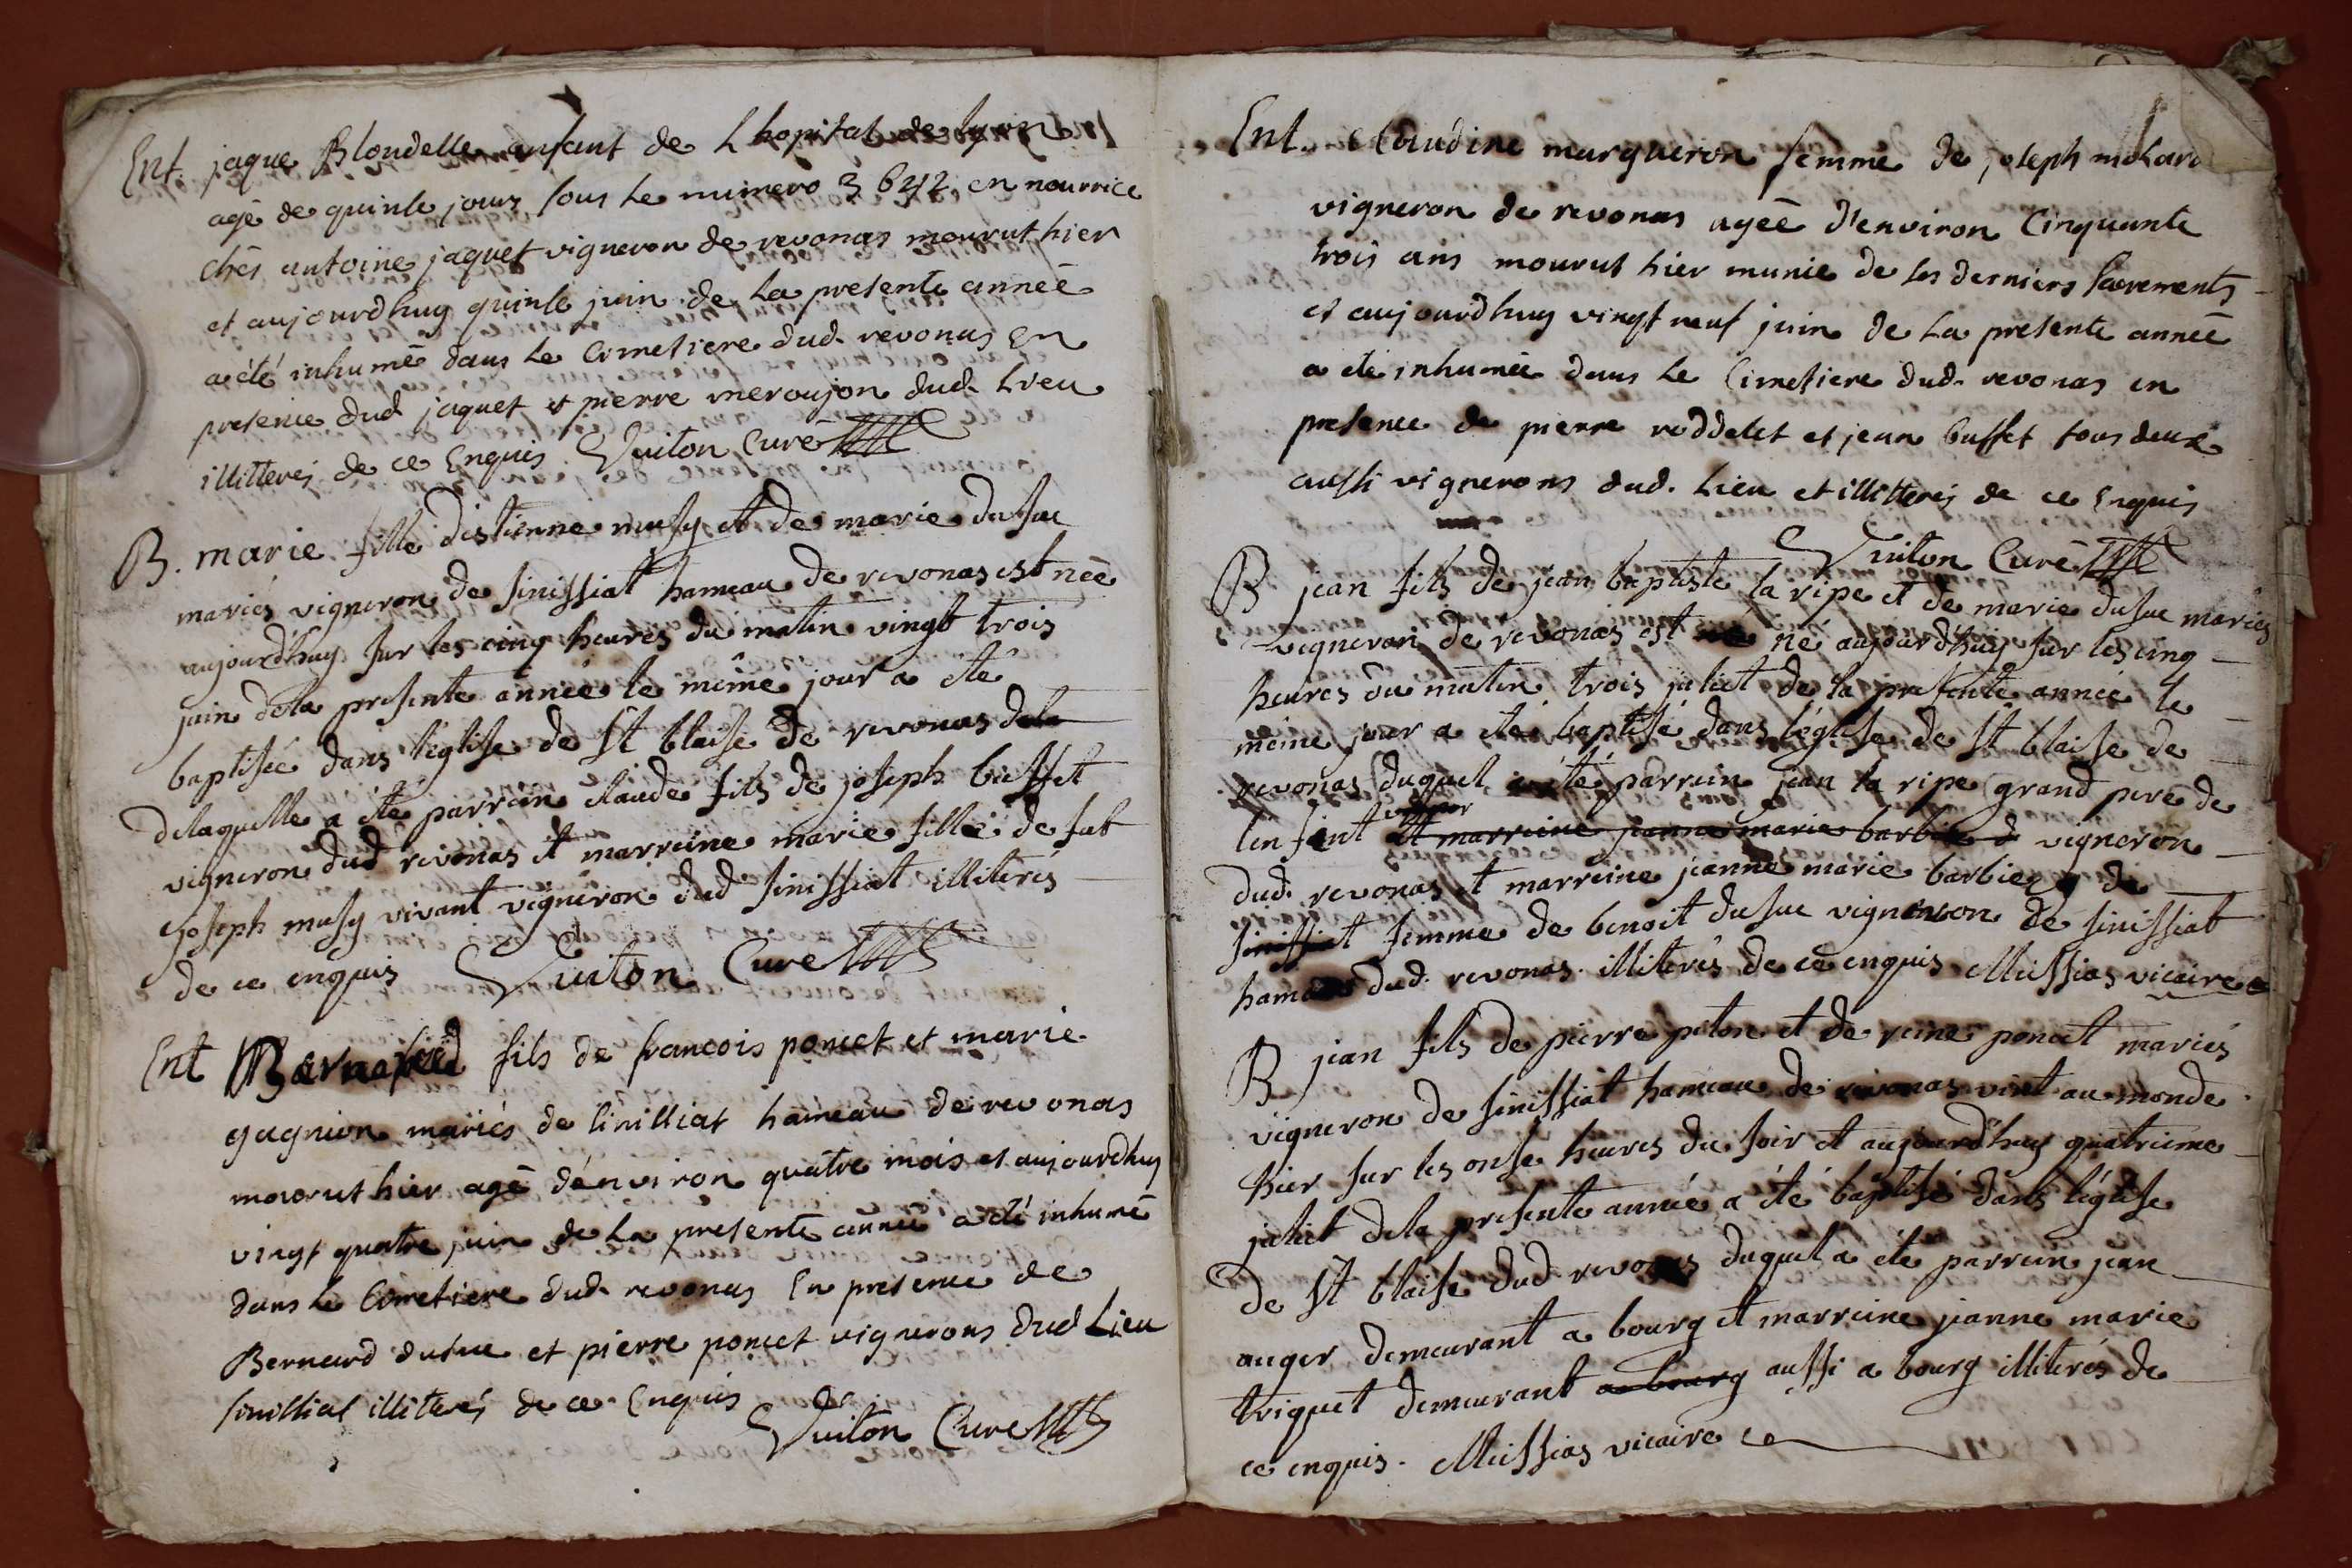 Ent. jaque Blondelle enfant de Lhopital de lyon
agé de quinse jours sous le numero 3 6212 en nourrice
chés antoine jaquet vigneron de revonas mourut hier
et aujourdhuy quinse juin de la presente anneé
a été inhumé dans le Cimetiere dud. revonas En
presence dud jaquet et pierre meroujon dud. Lieu
illitterés de ce Enquis Vuiton Curé
B. marie fille destienne musy et de marie dusuc
mariés vigneron de sinissiat hameau de revonas est neé
aujourdhuy sur les cinq heures du matin vingt trois
juin dela presente année le même jour a été
baptisée dans l'eglise de St blaise de revonas dela
delaquelle a éte parrain claude fils de joseph buffet
vigneron dud revonas et marreine marie fille de fut
joseph musy vivant vigneron dud sinissiat illiterés
de ce enquis Vuiton Curé
Ent fils de francois poncet et marie
gagnion mariés de sinissiat hameau de revonas
mourut hier agé d'environ quatre mois et aujourdhuy
vingt quatre juin de la presente année a été inhumé
dans le Cimetiere dud. revonas En presence de
Bernard dusuc et pierre poncet vignerons dud Lieu
sinissiat illitterés de ce Enquis
Vuiton Curé
Ent. Claudine margueron femme de joseph mokard
vigneron de revonas ageé d'environ Cinquante
trois ans mourut hier munie de ses derniers sacrements
et aujourdhuy vingt neuf juin de la presente anneé
a été inhumée dans le Cimetiere dud. revonas en
presence de pierre roddelet et jean buffet tous deux
aussi vignerons dud. Lieu et illitterés de ce Enquis
Vuiton Curé
B jean fils de jean baptiste la ripe et de marie dusuc mariés
vigneron de revonas est né aujourdhuy sur les cinq
heures du matin trois juliet de la presente année le
même jour a été baptisé dans l'église de St blaise de
revonas duquel a été parrain jean la ripe grand pere de
lenfent et marreine janne marie barbier d vigneron
dud. revonas et marreine jeanne marie barbier de
sinissiat femme de benoit dusuc vigneron de sinissiat
hameau dud. revonas. illiterés de ce enquis Missias vicaire
B jean fils de pierre piton et de reine poncet mariés
vigneron de sinissiat hameau de revonas vint au monde
hier sur les onse heures du soir et aujourdhuy quatrieme
juliet dela presente année a été baptisé dans l'église
De St blaise dud revonas duquel a éte parrein jean
auger demeurant a bourg et marreine jeanne marie
triquet demeurant a bourg aussi a bourg illiterés de
ce enquis. Missias vicaire